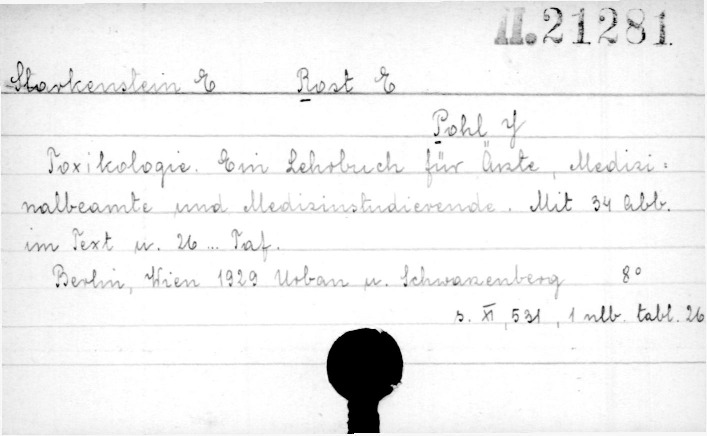 II. 21281
Starkenstein E Rost E
Pohl J
Toxikologie. Ein Lehrbuch für Ärzte, Medizi=
nalbeamte und Medizinstudierende. Mit 34 Abb.
im Text u. 26 ... Taf.
Berlin, Wien 1929 Urban u. Schwarzenberg 8°
s. XI, 531, 1 nlb. tabl. 26